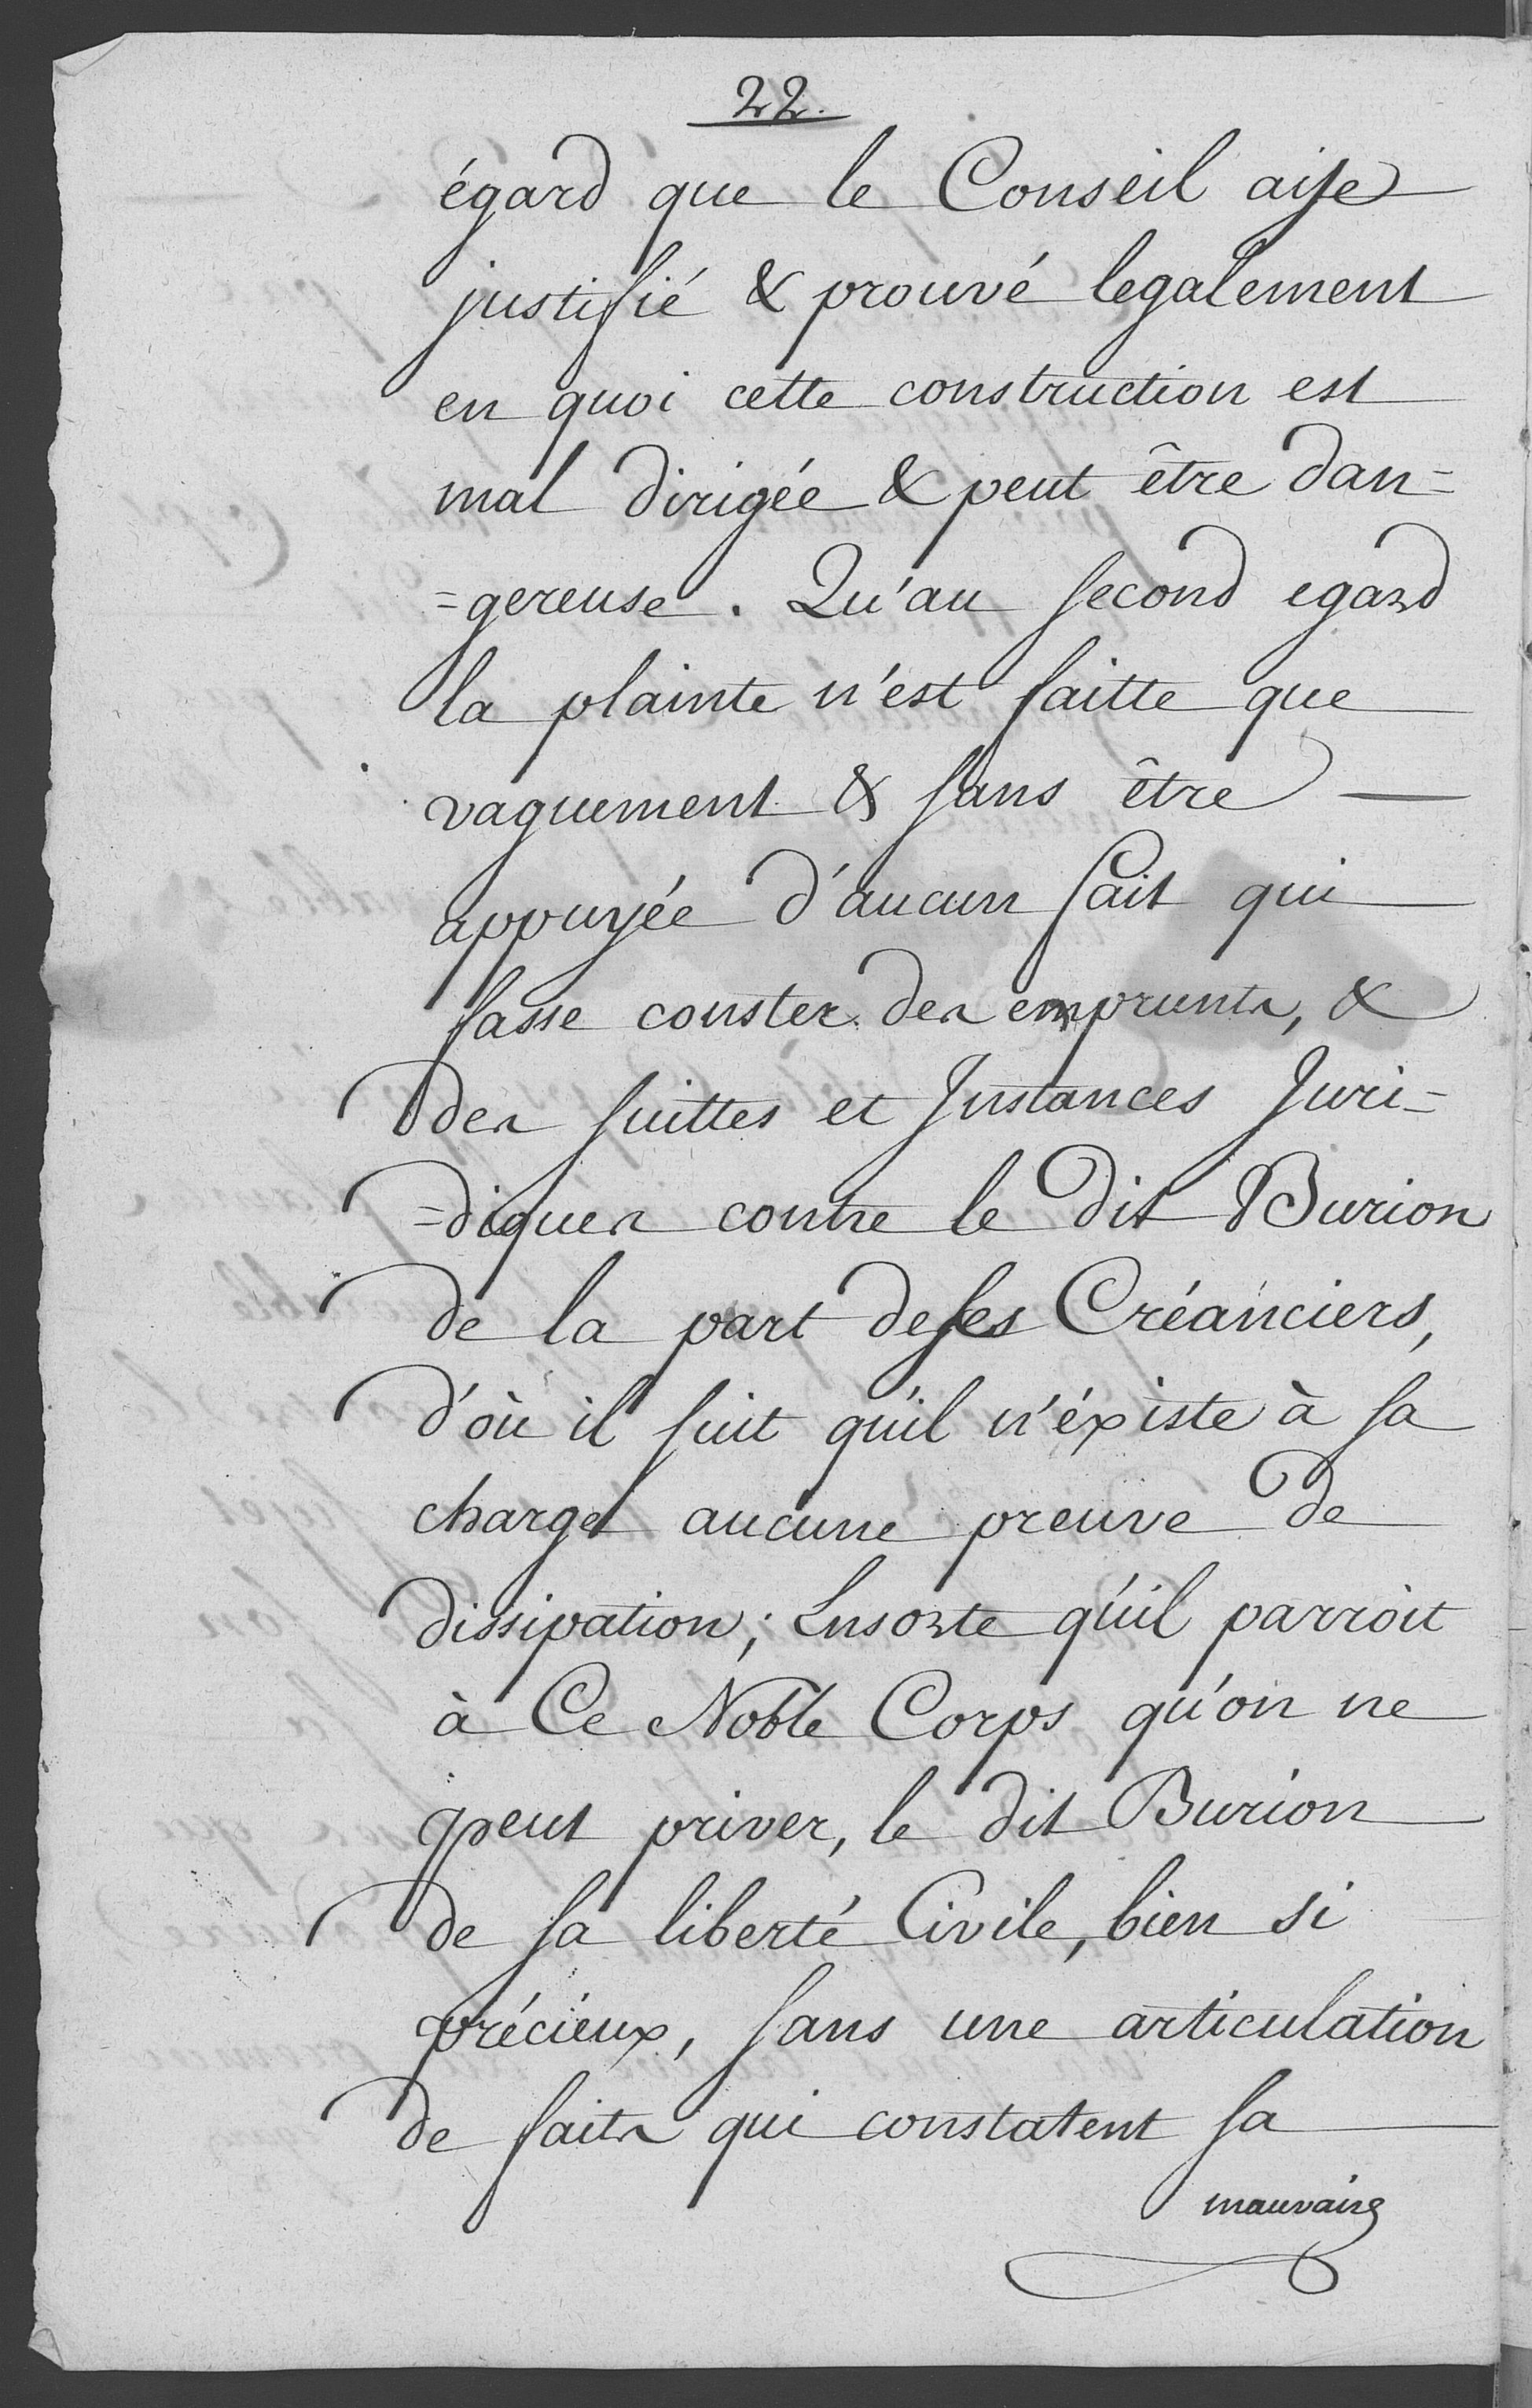 22.
égard que le Conseil aije
justifié & prouvé legalement
en quoi cette construction est
mal dirigée & peut être dan=
=gereuse. Qu'au second egard
la plainte n'est faitte que
vaguement & sans être —
appuyée d'aucun fait qui
fasse conster des emprunts, &
des suittes et Instances Juri=
=diques contre le dit Burion
de la part de ses Créanciers,
d'où il suit qu'il n'éxiste à sa
charge aucune preuve de
dissipation; Ensorte qu'il parroit
à Ce Noble Corps qu'on ne
peut priver, le dit Burion
de sa liberté Civile, bien si
précieux, sans une articulation
de faits qui constatent sa
mauvaise